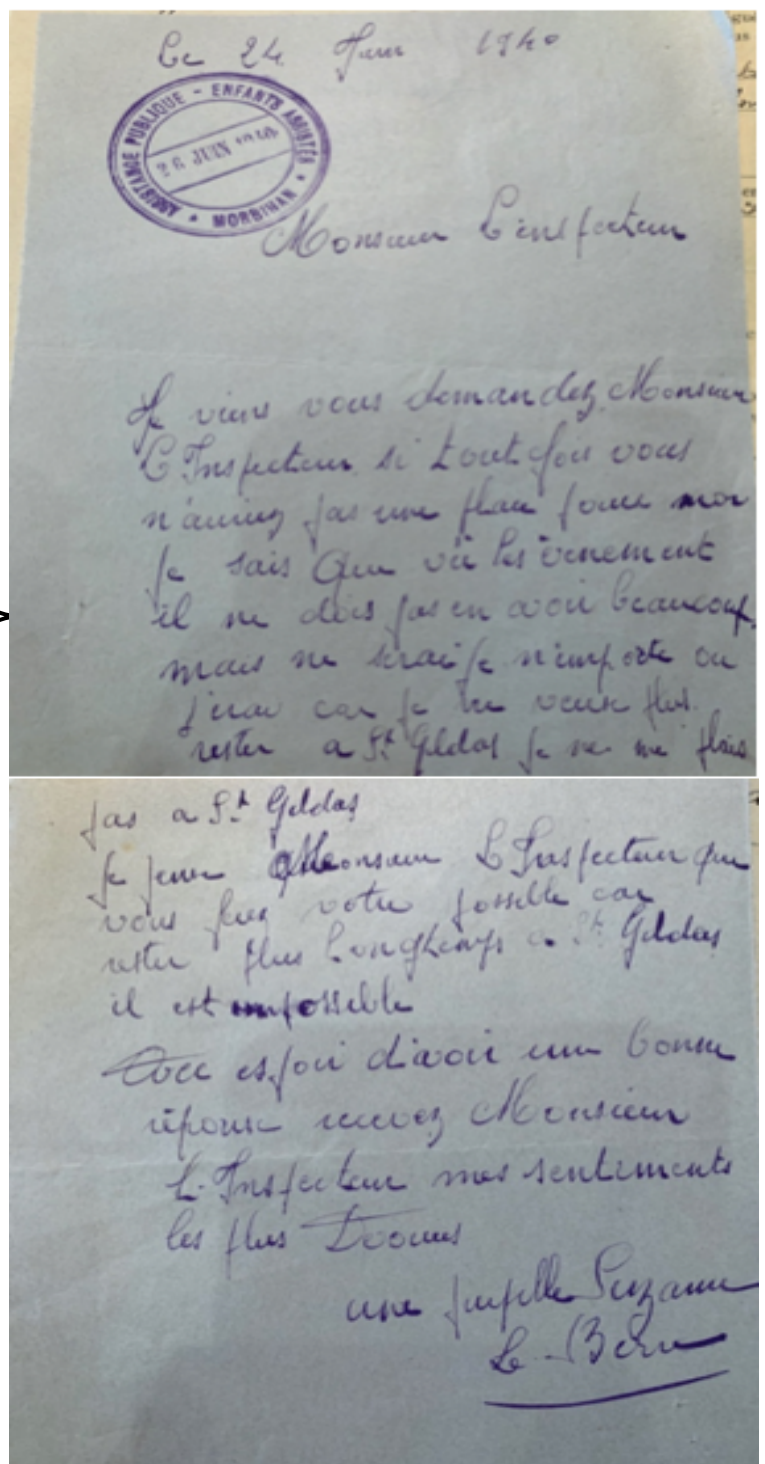 Le 24 Juin 1940
ASSISTANCE PUBLIQUE - ENFANTS ASSISTÉS
26 JUIN 1940
MORBIHAN
Monsieur L'inspecteur
Je viens vous demandez Monsieur
L'Inspecteur si toutefois vous
n'auriez pas une place pour moi
je sais Que vu les évenement
il ne dois pas en avoir beaucoup.
mais ne serai je n'importe ou
j'irai car je ne veux plus
rester a St Gildas je ne me plais
pas a St Gildas
je pense Monsieur L'Inspecteur que
vous ferez votre possible car
rester plus Longtemps a St Gildas
il est impossible
Avec espoir d'avoir une bonne
réponse recevez Monsieur
L'Inspecteur mes sentiments
les plus
une pupille Suzanne
Le